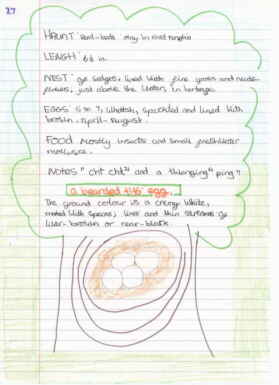 27
HAUNT Reed-beds may be and
LENGTH 6½ in.
NEST of sedges, lined with fine grass and reeds-
flowers, just above the water, in herbage.
EGGS 5 or 7, whitish, speckled and lined with
brown - April - August.
FOOD Mostly insects and small freshwater
molluscs.
NOTES "cht cht" and a "twanging" ping ?
a bearded tits egg.
The ground colour is a creamy white,
with specks, lines and thin of
liver-brown or near-black.